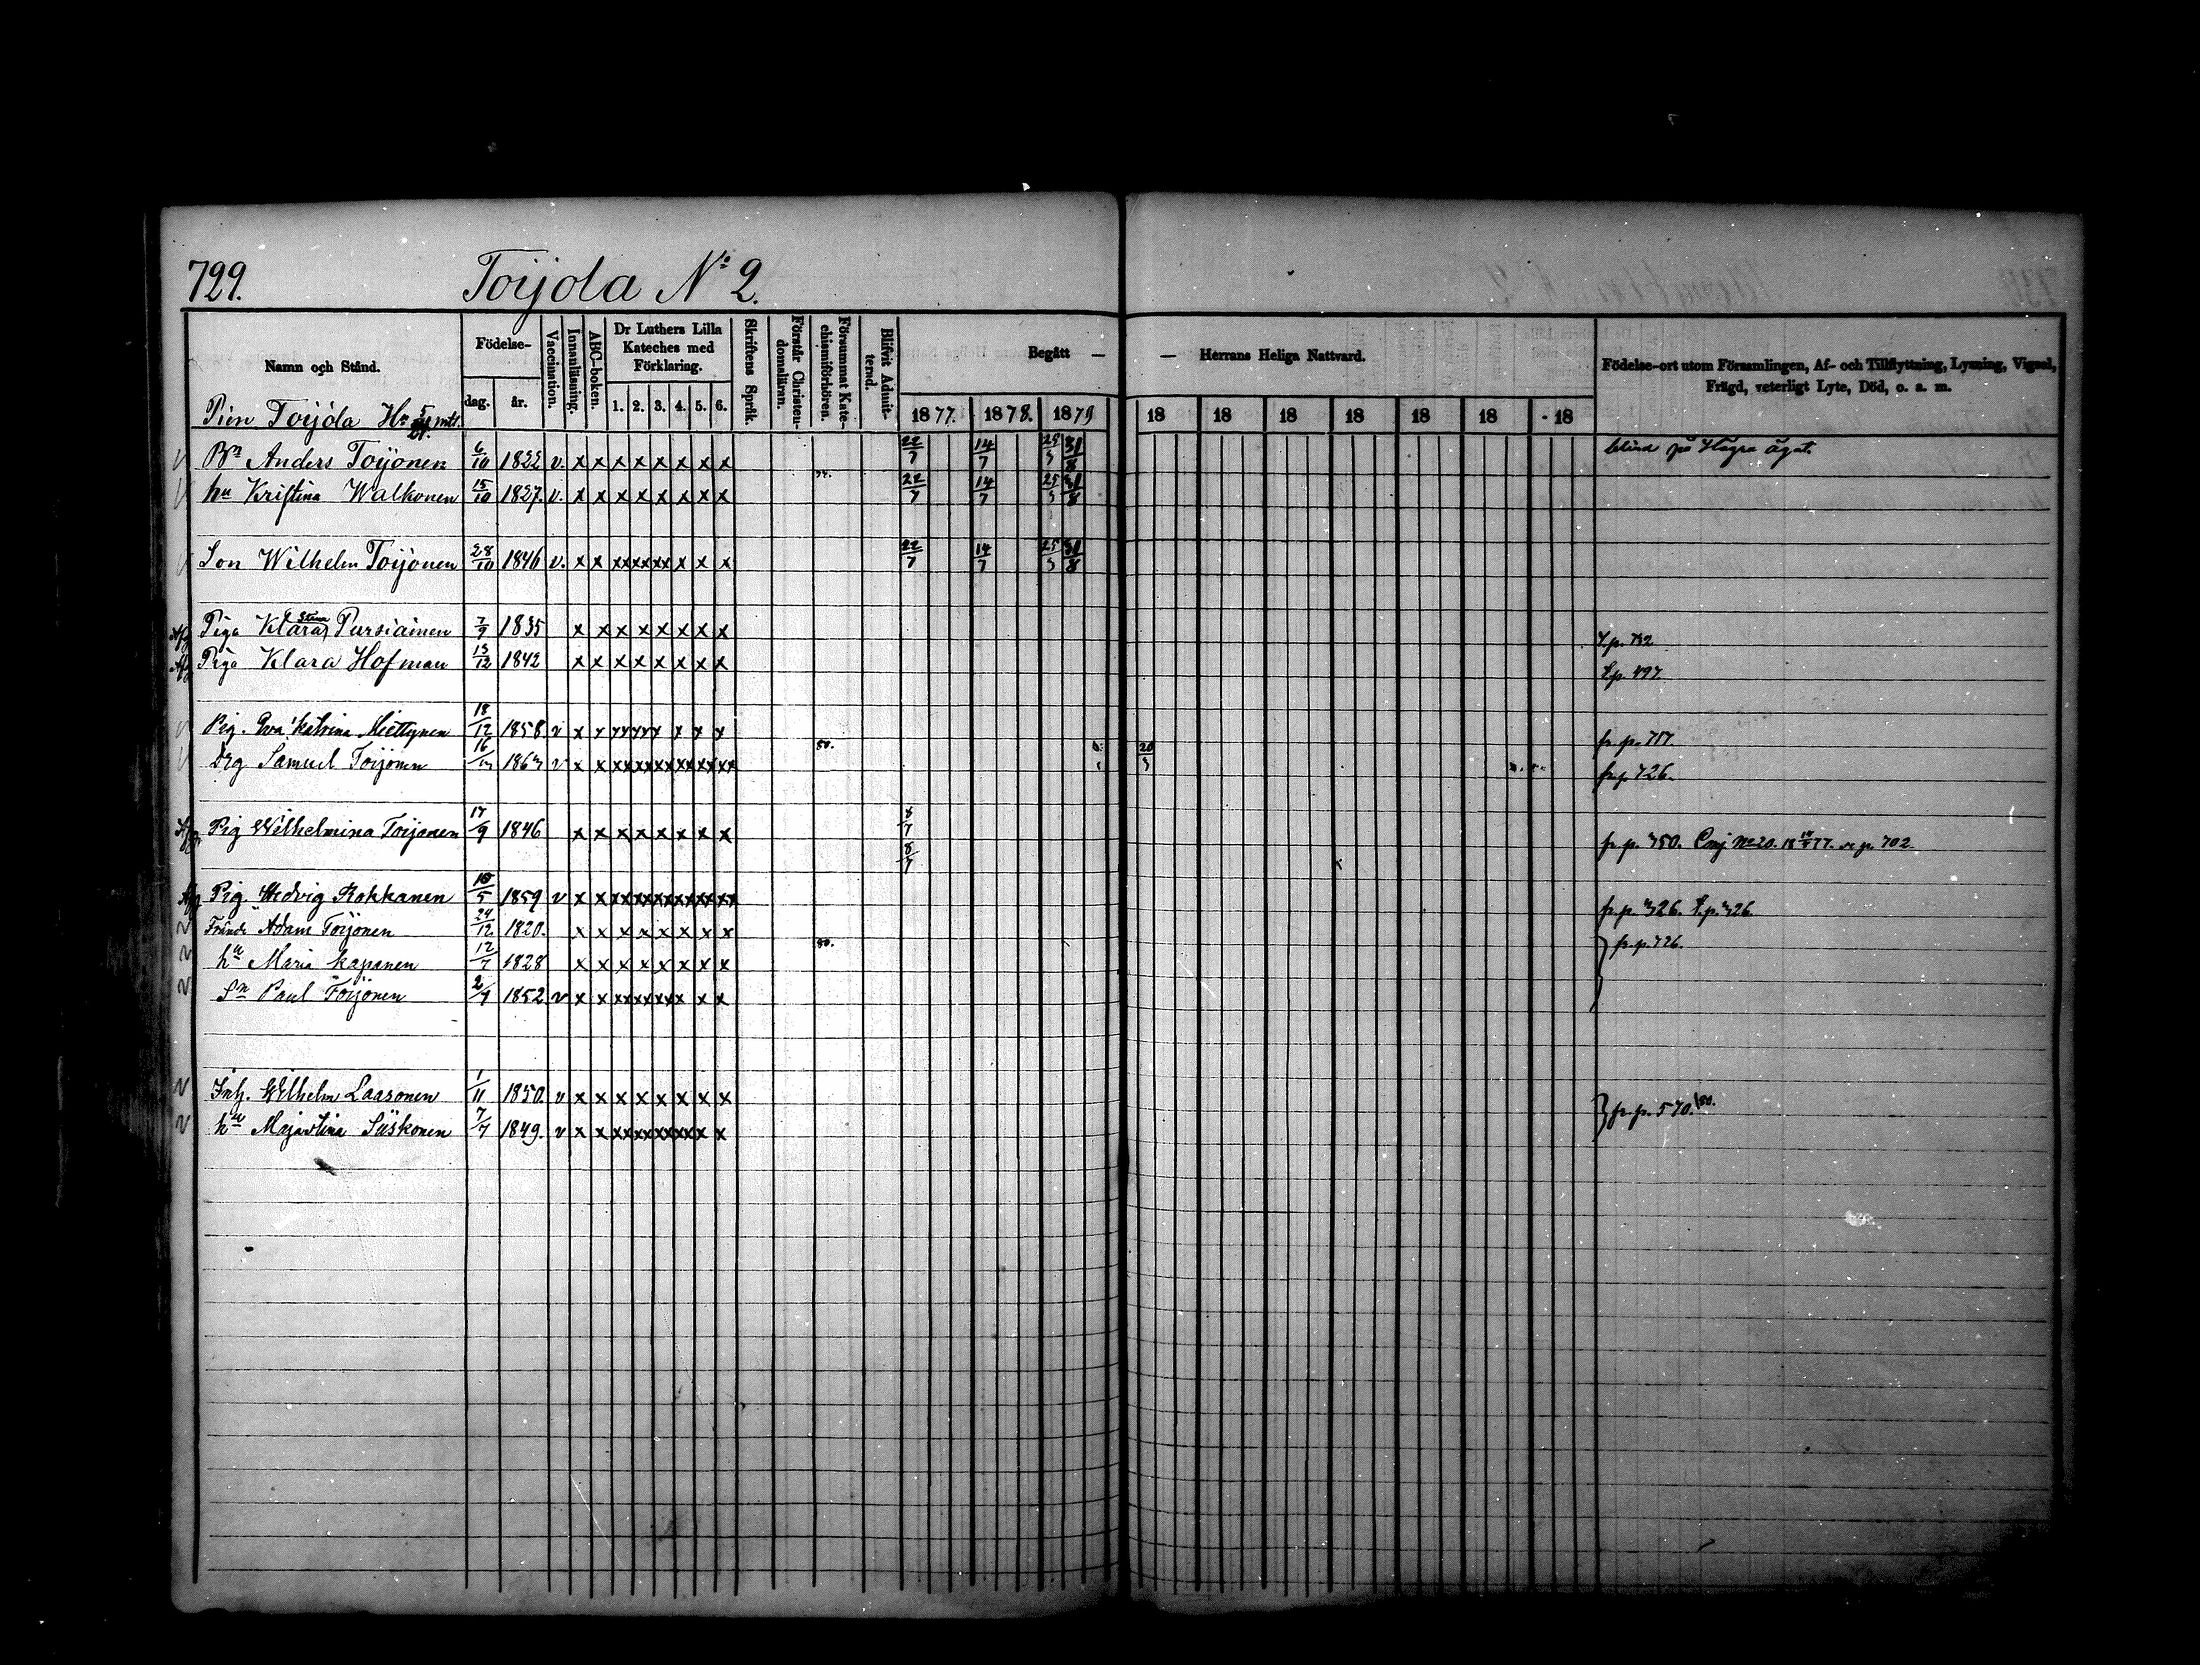 729. Toijola No 2.
Namn och Stånd. Födelse- dag. år. Vaccination. Innanläsning. ABC-boken. Dr Luthers Lilla Kateches med Förklaring. 1. 2. 3. 4. 5. 6. Skriftens Språk. Förstår Christendomsläran. Försummat Katechismiförhören. Blifvit Admitterad. Begått — — Herrans Heliga Nattvard. Födelse-ort utom Församlingen, Af- och Tillflyttning, Lysning, Vigsel, Frägd, veterligt Lyte, Död, o. a. m.
1877. 1878. 1879 18 18 18 18 18 18 18
Toijola
Bn Anders Toijonen 6/10 1822 v. x x x x x x x x 22/7 14/7 25/3 31/8 blind på Högra ögat.
hu Kristina Walkonen 15/10 1827. v. x x x x x x x x 22/7 14/7 25/3 31/8
Son Wilhelm Toijonen 28/10 1846 v. x x xx xx xx x x x 22/7 14/7 25/3 31/8
Piga Klara Stina Pursiainen 7/9 1835 x x x x x x x x t. p. 732
Piga Klara Hofman 13/12 1842 x x x x x x x x t. p. 497
Pig. Eva Katrina Miettynen 18/12 1858 v x x x x x x x x fr. p. 717.
Drg Samuel Toijonen 16/ 1863 v x x xx xx xx xx xx xx 80. 20/3 fr. p. 726.
Pig Wilhelmina Toijonen 17/9 1846 x x x x x x x x 8/7 fr. p. 750. No 20. 18 77. se p. 702
Pig. Hedvig Rokkanen 18/5 1859 v x x xx xx xx xx xx xx fr. p. 726. t. p. 726.
Frände Adam Toijonen 24/12 1820. x x x x x x x x fr. p. 726.
hu Maria Kapanen 12/7 1828 x x x x x x x x 80.
Sn Paul Toijonen 2/4 1852 v x x xx xx xx x x x
Inh. Wilhelm Laasonen 1/11 1850. v x x x x x x x x fr. p. 570. /80.
hu Majastina Siiskonen 7/7 1849. v x x xx xx xx xx x x